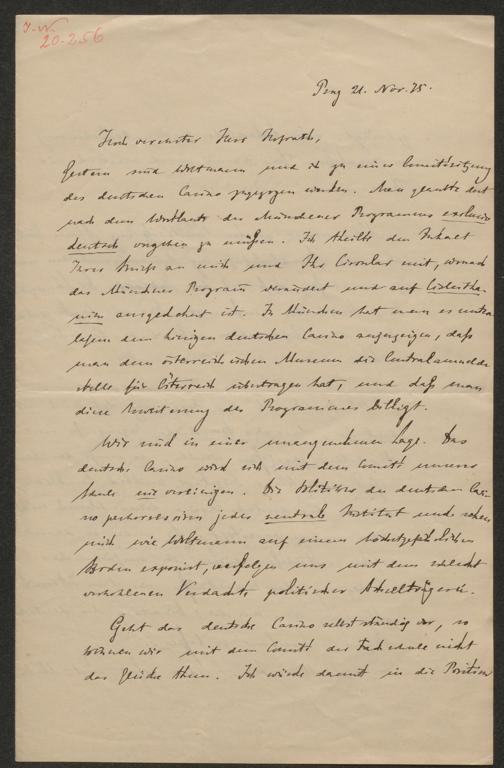 J.-N.
20.256
Prag 21. Nov. 75.
Hoch verehrter Herr Hofrath,
Gestern sind Woltmann und ich zu einer Comitésitzung
des deutschen Casino zugezogen worden. Man glaubte dort
nach dem Wortlaute des Münchener Programms exclusiv
deutsch vorgehen zu müßen. Ich theilte den Inhalt
Ihres Briefs an mich und Ihr Circular mit, wonach
das Münchner Programm verändert und auf Cisleitha-
nien ausgedehnt ist. In München hat man es unter-
lassen dem hiesigen deutschen Casino anzuzeigen, daß
man dem österreichischen Museum die Centralanmelde-
stelle für Österreich übertragen hat, und daß man
diese Erweiterung des Programmes billigt.
Wir sind in einer unangenehmen Lage. Das
deutsche Casino wird sich mit dem Comité unserer
Schule nie vereinigen. Die Politiker des deutschen Casi-
no perhorresciren jedes neutrale Institut und sehen
mich wie Woltmann auf einem höchst gefährlichen
Boden exponirt, verfolgen uns mit dem schlecht
verhohlenen Verdachte politischer Achselträgerei.
Geht das deutsche Casino selbstständig vor, so
können wir mit dem Comité der Fachschule nicht
das Gleiche thun. Ich würde damit in die Position